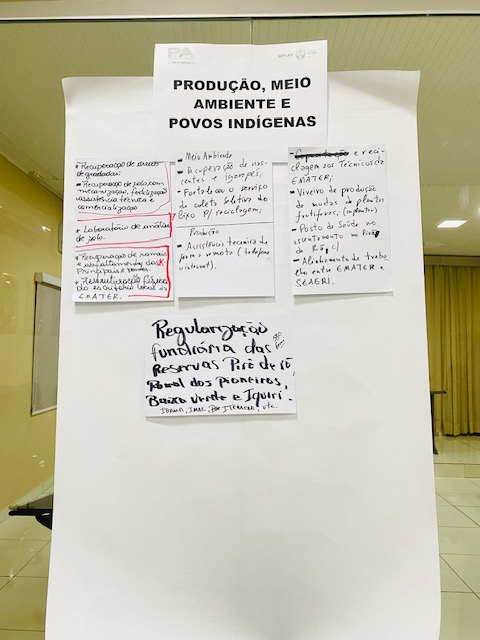 PA
SEPLAN
PRODUÇÃO, MEIO
AMBIENTE E
POVOS INDÍGENAS
• Recuperação de áreas
degradadas;
• Recuperação do solo, com
mecanização, fertilização
assistência técnica e
comercialização
• Laboratório de análise
de solo.
• Recuperação de ramais
e asfaltamento das
Principais e pontes
• Restruturação física
do escritório local da
EMATER.
- Meio Ambiente
- Recuperção de nas-
centes e igarapés;
- Fortaleceu o serviço
de coleta seletiva do
lixo P/ reciclagem;
Produção
- Assistência tecnica de
forma remota (telefone
e internet).
- Capacitação e reci-
clagem aos Técnicos da
EMATER;
- Viveiro de produção
de mudas de plantas
frutíferas;
- Posto de Saúde no
assentamento no Pirã
de Rã,
- Alinhamento do traba-
lho entre EMATER e
SEAGRI.
Regularização
fundiária das
Reservas Pirã de rã,
Ramal dos pioneiros,
Baixa Verde e Iquiri.
IBAMA, IMAC, ITERACRE, etc.